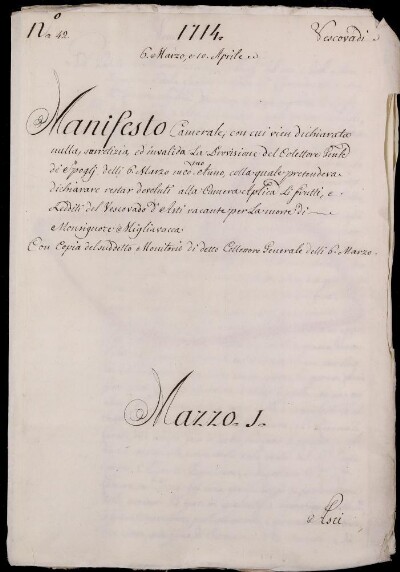 No 42. 1714. Vescovadi
6. Marzo, e 10. Aprile
Manifesto Camerale, con cui vien dichiarata
nulla, surretizia, ed invalida La Provisione del Colettore Gnle
de Spogli delli 6. Marzo, colla quale pretendeva
dichiarare restar devoluti alla Camera Aplica Li frutti, e
Redditi del Vescovado D'Asti vacante per La morte di
Monsignore Migliavacca
Con Copia del suddetto Monitorio di detto Collettore Generale delli 6. Marzo.
Mazzo. 1.